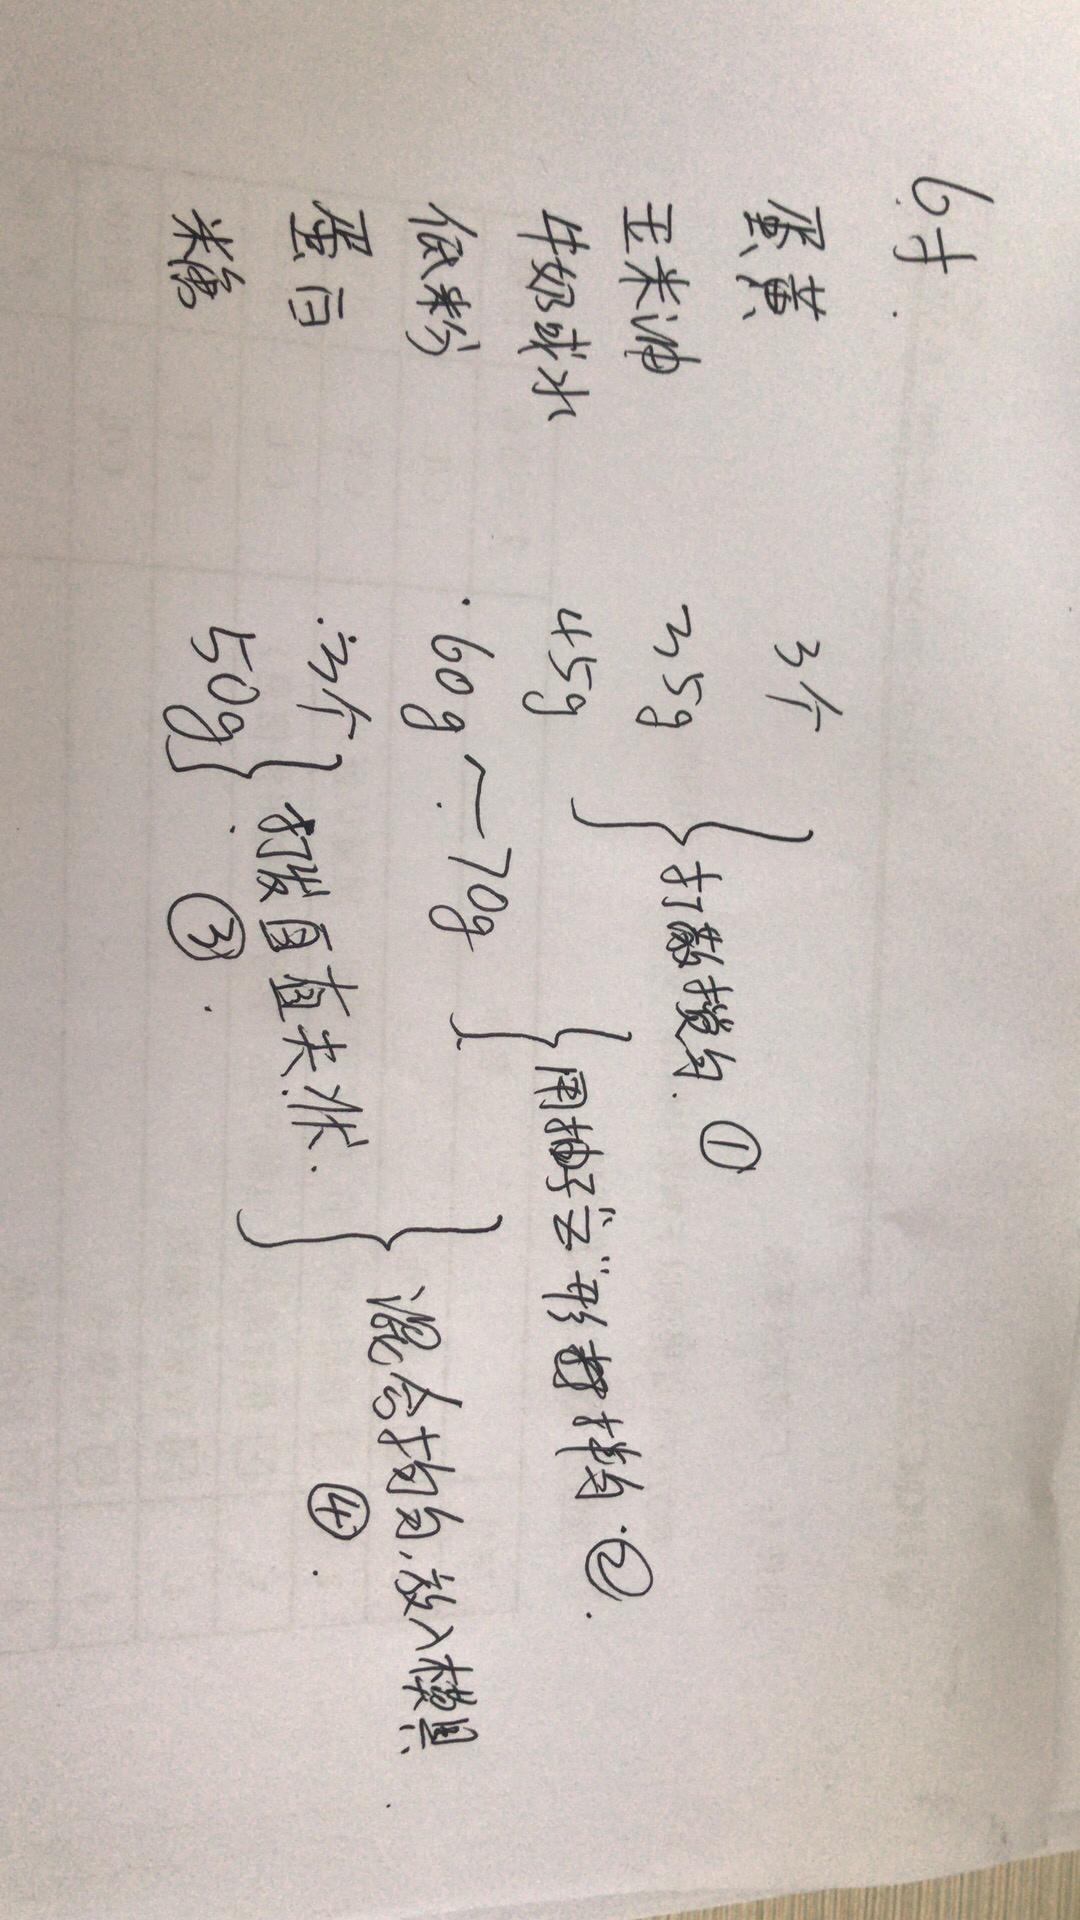 6寸
蛋黄 3个
玉米油 35g
牛奶或水 45g
打散搅匀 ①
低粉 60g—70g
用抽子“Z”形 拌匀 ②
蛋白 3个
米糖 50g
打发自直夹状 ③
混合拌匀、放入模具 ④